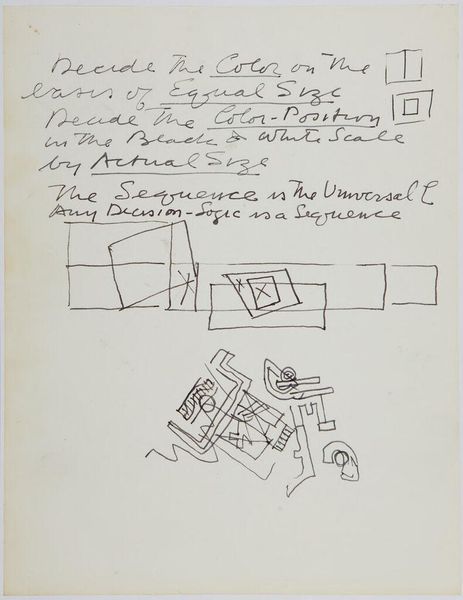 Decide The Color on The
basis of Equal Size
Decide The Color-Position
in The Black & White Scale
by Actual Size
The Sequence is The Universal
Any Decision-Logic is a Sequence